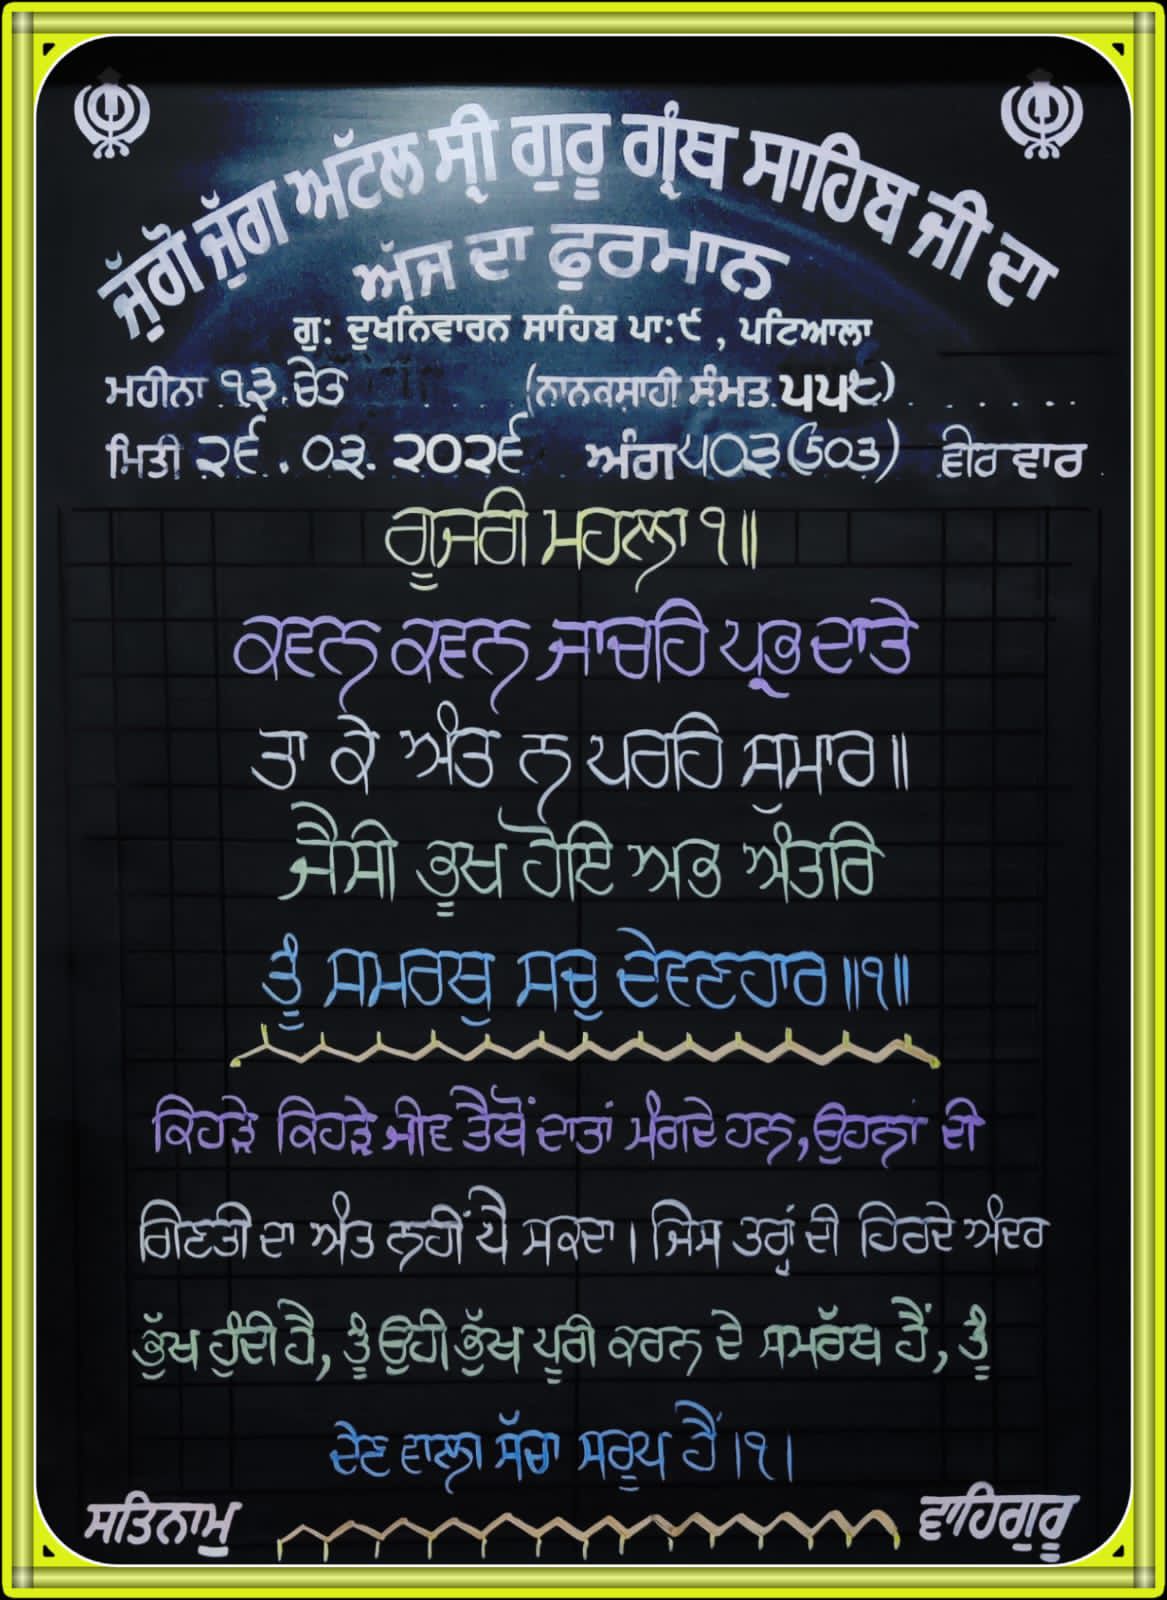 ਜੁੱਗੋ ਜੁੱਗ ਅਟੱਲ ਸ੍ਰੀ ਗੁਰੂ ਗ੍ਰੰਥ ਸਾਹਿਬ ਜੀ ਦਾ
ਅੱਜ ਦਾ ਫੁਰਮਾਨ
ਗੁ: ਦੁਖਨਿਵਾਰਨ ਸਾਹਿਬ ਪਾ:੯ , ਪਟਿਆਲਾ
ਮਹੀਨਾ ੧੩ ਚੇਤ (ਨਾਨਕਸ਼ਾਹੀ ਸੰਮਤ ੫੫੮)
ਮਿਤੀ ੨੬.੦੩.੨੦੨੬ ਅੰਗ ੫੦੩ (503) ਵੀਰ ਵਾਰ
ਗੂਜਰੀ ਮਹਲਾ ੧॥
ਕਵਨ ਕਵਨ ਜਾਚਹਿ ਪ੍ਰਭ ਦਾਤੇ
ਤਾ ਕੇ ਅੰਤ ਨ ਪਰਹਿ ਸੁਮਾਰ॥
ਜੈਸੀ ਭੂਖ ਹੋਇ ਅਭ ਅੰਤਰਿ
ਤੂੰ ਸਮਰਥੁ ਸਚੁ ਦੇਵਣਹਾਰ॥੧॥
ਕਿਹੜੇ ਕਿਹੜੇ ਜੀਵ ਤੈਥੋਂ ਦਾਤਾਂ ਮੰਗਦੇ ਹਨ,ਉਹਨਾਂ ਦੀ
ਗਿਣਤੀ ਦਾ ਅੰਤ ਨਹੀਂ ਪੈ ਸਕਦਾ। ਜਿਸ ਤਰ੍ਹਾਂ ਦੀ ਹਿਰਦੇ ਅੰਦਰ
ਭੁੱਖ ਹੁੰਦੀ ਹੈ, ਤੂੰ ਉਹੀ ਭੁੱਖ ਪੂਰੀ ਕਰਨ ਦੇ ਸਮਰੱਥ ਹੈਂ, ਤੂੰ
ਦੇਣ ਵਾਲਾ ਸੱਚਾ ਸਰੂਪ ਹੈਂ।੧।
ਸਤਿਨਾਮੁ ਵਾਹਿਗੁਰੂ